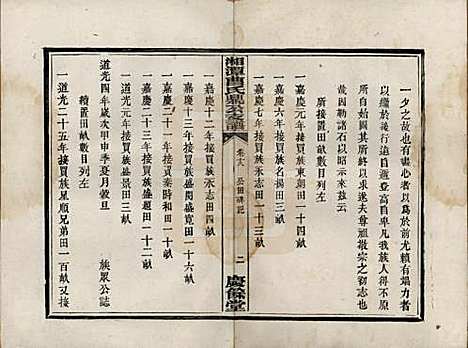 一夕之故也有盡心者以爲於前尤賴有竭力者
以繼於義行遠自邇登高自卑凡我族人不得不原
所自始圖其所終以求遂夫尊祖敬宗之初志也
因茲勒諸石以昭示來茲云
所接置田畝數目列左
一嘉慶元年接買族東朝田一十四畝
一嘉慶六年接買族名揚田三畝
一嘉慶七年接買族永志田十畝
湘潭曹氏
卷十八 公田碑記
二
慶餘堂
一嘉慶十二年接買族永志田四畝
一嘉慶二十年接買族盛閔盛寬田一十六畝
一嘉慶二十一年接買秦時和田一十畝
一嘉慶二十三年接買族盛題田一十二畝
一道光元年接買族盛景田三畝
道光四年歲次甲申季夏月穀旦
族眾公誌
續置田畝數目列左
一道光二十五年接買族星順兄弟田一百畝又接